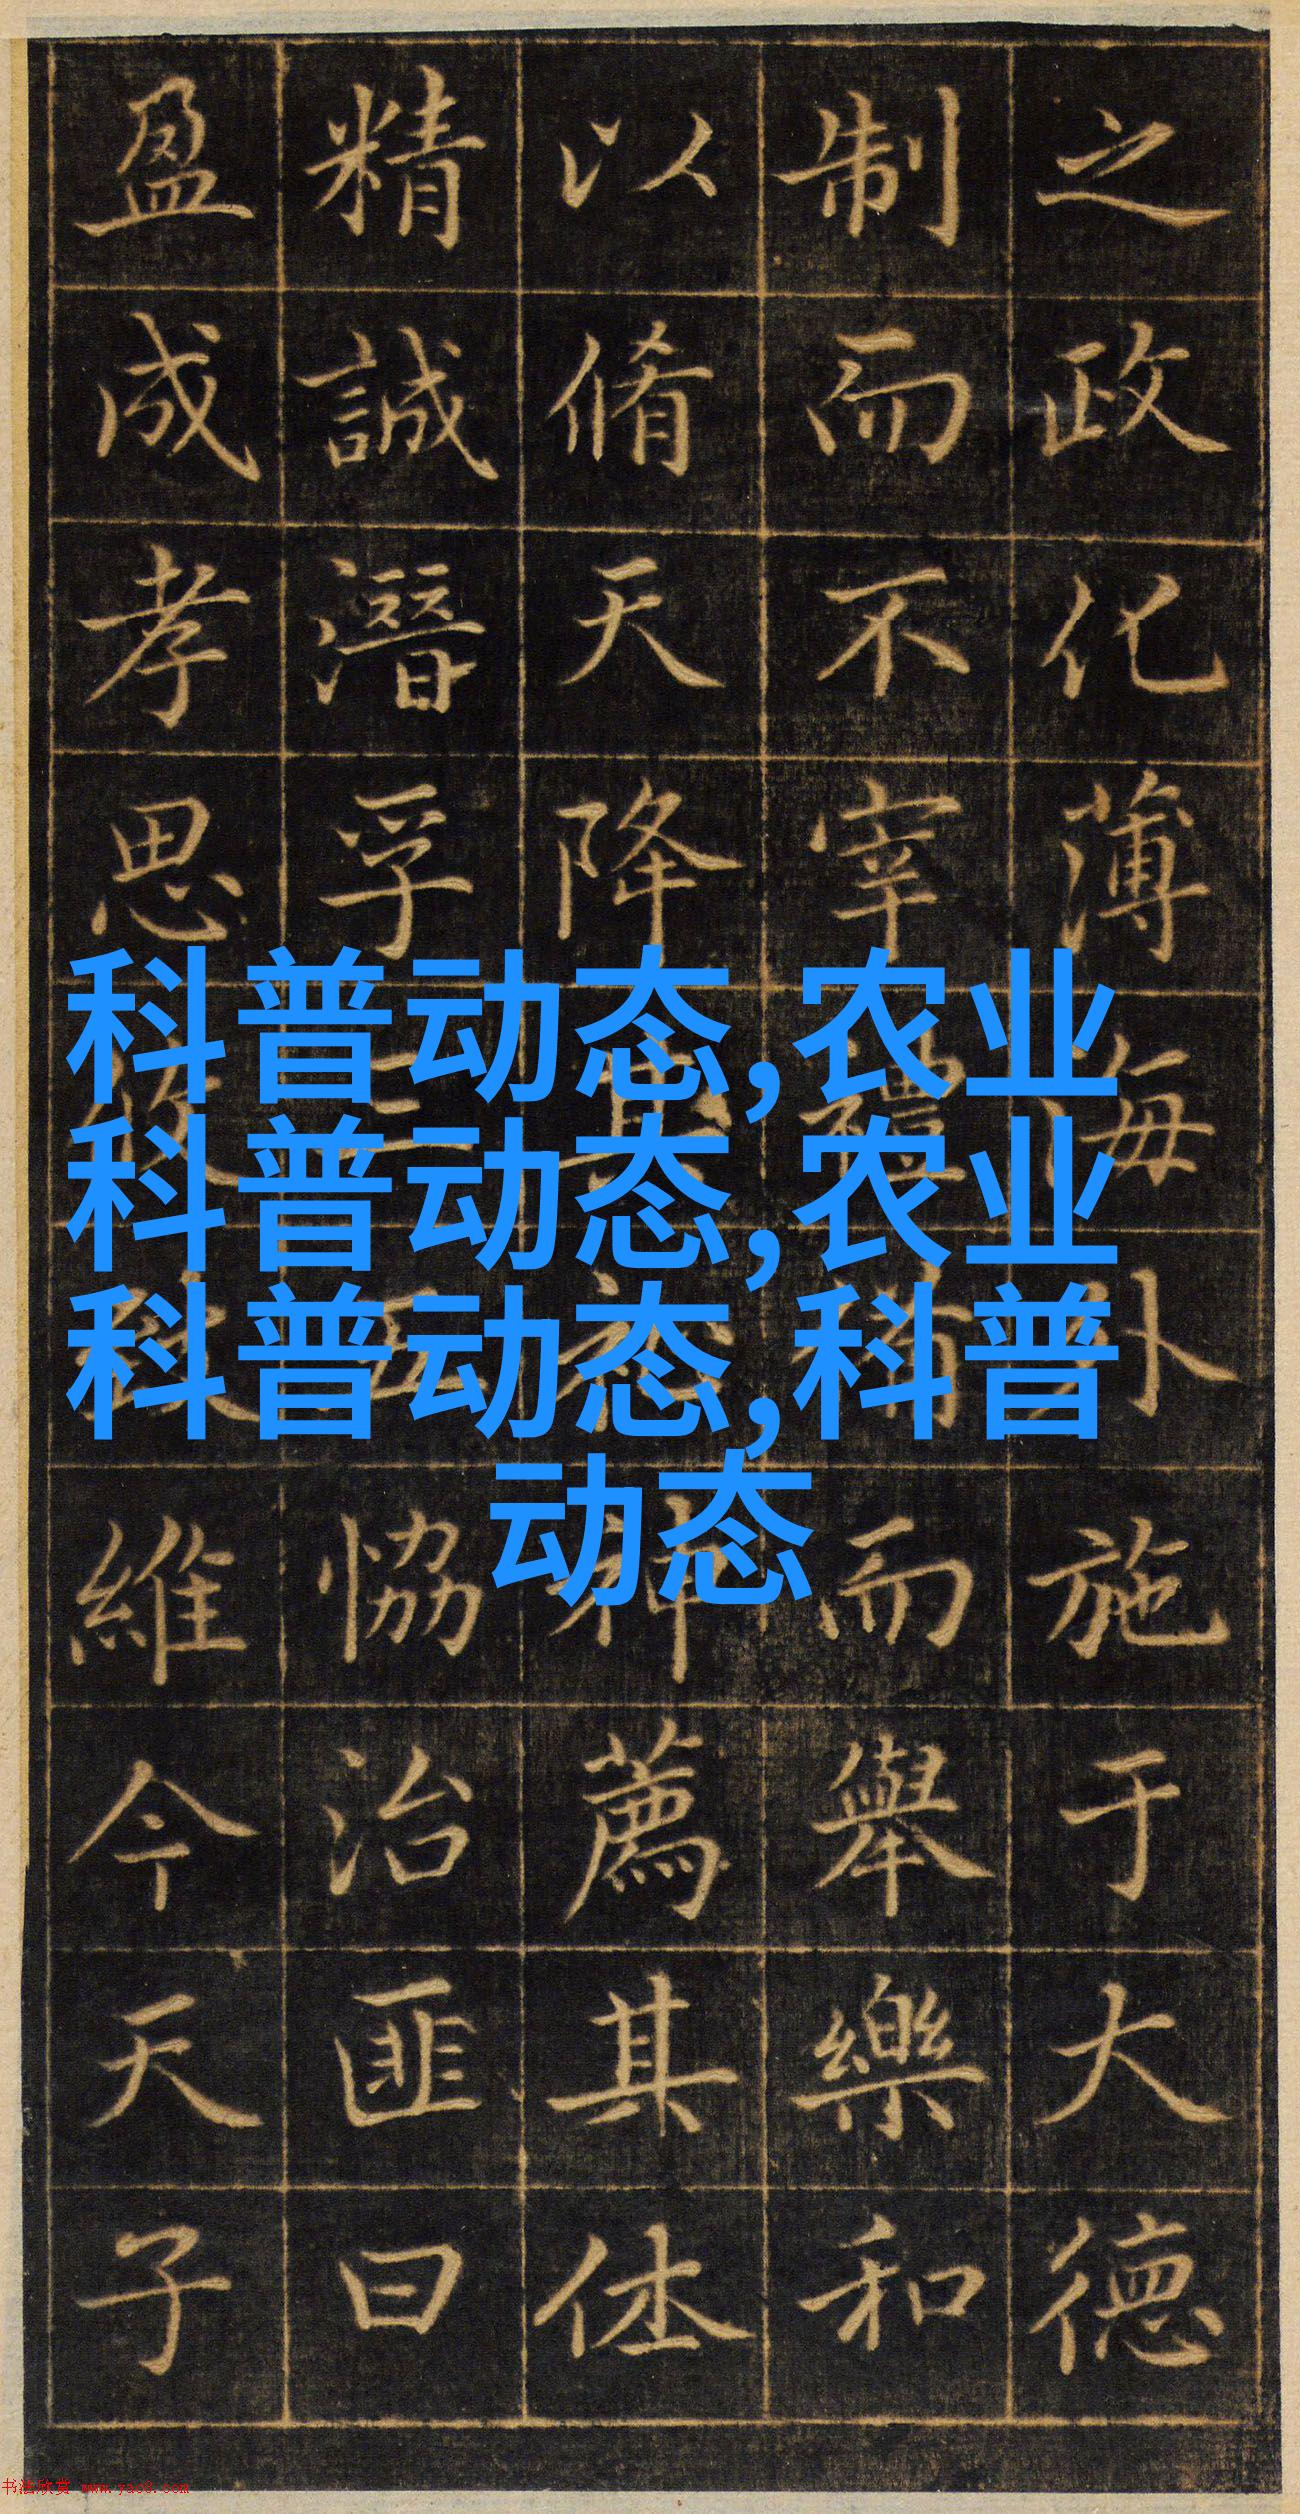 之政化薄海外施于大德
制而不宰禮備而舉樂和
以脩天降神薦其休
精誠潛孚三五恊治匪曰
盈成孝思維今天子
科普动态,农业
科普动态,农业
科普动态,科普
动态
书法欣赏 www.yac8.com